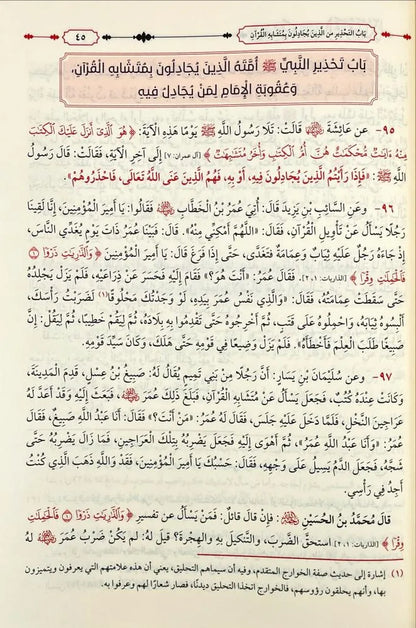 بَابُ التَّحْذِيرِ مِنَ الَّذِينَ يُجَادِلُونَ بِمُتَشَابِهِ الْقُرْآنِ
٤٥
بَابُ تَحْذِيرِ النَّبِيِّ ﷺ أُمَّتَهُ الَّذِينَ يُجَادِلُونَ بِمُتَشَابِهِ الْقُرْآنِ،
وَعُقُوبَةِ الْإِمَامِ لِمَنْ يُجَادِلُ فِيهِ
٩٥- عن عَائِشَةَ ﵂ قَالَتْ: تَلَا رَسُولُ اللَّهِ ﷺ يَوْمًا هَذِهِ الْآيَةَ: ﴿هُوَ الَّذِي أَنْزَلَ عَلَيْكَ الْكِتَابَ
مِنْهُ آيَاتٌ مُحْكَمَاتٌ هُنَّ أُمُّ الْكِتَابِ وَأُخَرُ مُتَشَابِهَاتٌ﴾ [آل عمران: ٧] إِلَى آخِرِ الْآيَةِ، فَقَالَتْ: قَالَ رَسُولُ
اللَّهِ ﷺ: «فَإِذَا رَأَيْتُمُ الَّذِينَ يُجَادِلُونَ فِيهِ، أَوْ بِهِ، فَهُمُ الَّذِينَ عَنَى اللَّهُ تَعَالَى، فَاحْذَرُوهُمْ».
٩٦- وَعَنِ السَّائِبِ بْنِ يَزِيدَ قَالَ: أُتِيَ عُمَرُ بْنُ الْخَطَّابِ ﵁ فَقَالُوا: يَا أَمِيرَ الْمُؤْمِنِينَ، إِنَّا لَقِينَا
رَجُلًا يَسْأَلُ عَنْ تَأْوِيلِ الْقُرْآنِ، فَقَالَ: «اللَّهُمَّ أَمْكِنِّي مِنْهُ». قَالَ: فَبَيْنَا عُمَرُ ذَاتَ يَوْمٍ يُغَدِّي النَّاسَ،
إِذْ جَاءَهُ رَجُلٌ عَلَيْهِ ثِيَابٌ وَعِمَامَةٌ فَتَغَدَّى، حَتَّى إِذَا فَرَغَ قَالَ: يَا أَمِيرَ الْمُؤْمِنِينَ ﴿وَالذَّارِيَاتِ ذَرْوًا ۝١
فَالْحَامِلَاتِ وِقْرًا﴾ [الذاريات: ١، ٢] فَقَالَ عُمَرُ: «أَنْتَ هُوَ؟» فَقَامَ إِلَيْهِ فَحَسَرَ عَنْ ذِرَاعَيْهِ، فَلَمْ يَزَلْ يَجْلِدُهُ
حَتَّى سَقَطَتْ عِمَامَتُهُ، فَقَالَ: «وَالَّذِي نَفْسُ عُمَرَ بِيَدِهِ، لَوْ وَجَدْتُكَ مَحْلُوقًا(١) لَضَرَبْتُ رَأْسَكَ،
أَلْبِسُوهُ ثِيَابَهُ، وَاحْمِلُوهُ عَلَى قَتَبٍ، ثُمَّ أَخْرِجُوهُ حَتَّى تَقْدَمُوا بِهِ بِلَادَهُ، ثُمَّ لِيَقُمْ خَطِيبًا، ثُمَّ لِيَقُلْ: إِنَّ
صَبِيغًا طَلَبَ الْعِلْمَ فَأَخْطَأَهُ». فَلَمْ يَزَلْ وَضِيعًا فِي قَوْمِهِ حَتَّى هَلَكَ، وَكَانَ سَيِّدَ قَوْمِهِ.
٩٧- وعن سُلَيْمَانَ بْنِ يَسَارٍ: أَنَّ رَجُلًا مِنْ بَنِي تَمِيمٍ يُقَالُ لَهُ: صَبِيغُ بْنُ عِسْلٍ، قَدِمَ الْمَدِينَةَ،
وَكَانَتْ عِنْدَهُ كُتُبٌ، فَجَعَلَ يَسْأَلُ عَنْ مُتَشَابِهِ الْقُرْآنِ، فَبَلَغَ ذَلِكَ عُمَرَ ﵁، فَبَعَثَ إِلَيْهِ وَقَدْ أَعَدَّ لَهُ
عَرَاجِينَ النَّخْلِ، فَلَمَّا دَخَلَ عَلَيْهِ جَلَسَ، فَقَالَ لَهُ عُمَرُ: «مَنْ أَنْتَ؟» فَقَالَ: أَنَا عَبْدُ اللَّهِ صَبِيغٌ، فَقَالَ
عُمَرُ: «وَأَنَا عَبْدُ اللَّهِ عُمَرُ»، ثُمَّ أَهْوَى إِلَيْهِ فَجَعَلَ يَضْرِبُهُ بِتِلْكَ الْعَرَاجِينِ، فَمَا زَالَ يَضْرِبُهُ حَتَّى
شَجَّهُ، فَجَعَلَ الدَّمُ يَسِيلُ عَلَى وَجْهِهِ، فَقَالَ: حَسْبُكَ يَا أَمِيرَ الْمُؤْمِنِينَ، فَقَدْ وَاللَّهِ ذَهَبَ الَّذِي كُنْتُ
أَجِدُ فِي رَأْسِي.
قَالَ مُحَمَّدُ بْنُ الْحُسَيْنِ ﵀: فَإِنْ قَالَ قَائِلٌ: فَمَنْ يَسْأَلُ عَنْ تَفْسِيرِ ﴿وَالذَّارِيَاتِ ذَرْوًا ۝١ فَالْحَامِلَاتِ
وِقْرًا﴾ [الذاريات: ١، ٢] اسْتَحَقَّ الضَّرْبَ، وَالتَّنْكِيلَ بِهِ وَالْهِجْرَةَ؟ قِيلَ لَهُ: لَمْ يَكُنْ ضَرْبُ عُمَرَ ﵁ لَهُ
(١) إشارة إلى حديث صفة الخوارج المتقدم، وفيه أن سيماهم التحليق، يعني أن هذه علامتهم التي يعرفون ويتميزون
بها، وأنهم يحلقون رؤوسهم، فالخوارج اتخذا التحليق ديدنًا، فصار شعارًا لهم وعرفوا به.